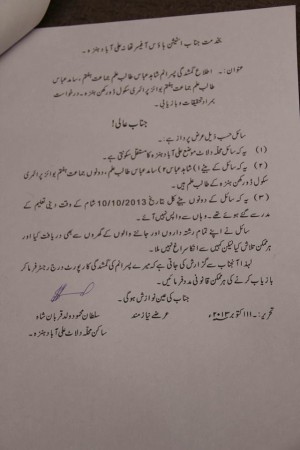 بخدمت جناب اسٹیشن ہاؤس آفیسر تھانہ علی آباد ہنزہ ۔
عنوان : ۔ اطلاع گمشدگی پسرانم شاہد عباس طالب علم جماعت ہفتم ، ساجد عباس
طالب علم جماعت ہفتم بوائز پرائمری سکول ڈورکھن ہنزہ ۔ درخواست
بمراد تحقیقات و بازیابی ۔
جناب عالی !
سائل حسب ذیل عرض پرداز ہے : ۔
(۱) یہ کہ سائل محلہ دلاٹ موضع علی آباد ہنزہ کا مستقل سکونتی ہے ۔
(۲) یہ کہ سائل کے بیٹے ۱) شاہد عباس ۲) ساجد عباس طالب علم ، دونوں جماعت ہفتم بوائز پرائمری
سکول ڈورکھن ہنزہ کے طالب علم ہیں ۔
(۳) یہ کہ سائل کے دونوں بیٹے کل بتاریخ 10/10/2013 شام کے وقت دینی تعلیم کے
مدرسے گئے ہوئے تھے ۔ وہاں سے واپس نہیں آئے ۔
سائل نے اپنے تمام رشتہ داروں اور جاننے والوں کے گھروں سے بھی دریافت کیا اور
ہر ممکن تلاش کیا لیکن کہیں سے انکا سراغ نہیں ملا ۔
لہذا آنجناب سے گزارش کی جاتی ہے کہ میرے پسرانم کی گمشدگی کا رپورٹ درج رجسٹر فرما کر
بازیاب کرنے کی ہر ممکن قانونی مدد فرمائیں ۔
جناب کی عین نوازش ہوگی ۔
تحریر : ۔ ۱۱ اکتوبر ۲۰۱۳ء
عرضے نیاز مند
سلطان محمود ولد قربان شاہ
ساکن محلہ دلاٹ علی آباد ہنزہ ۔